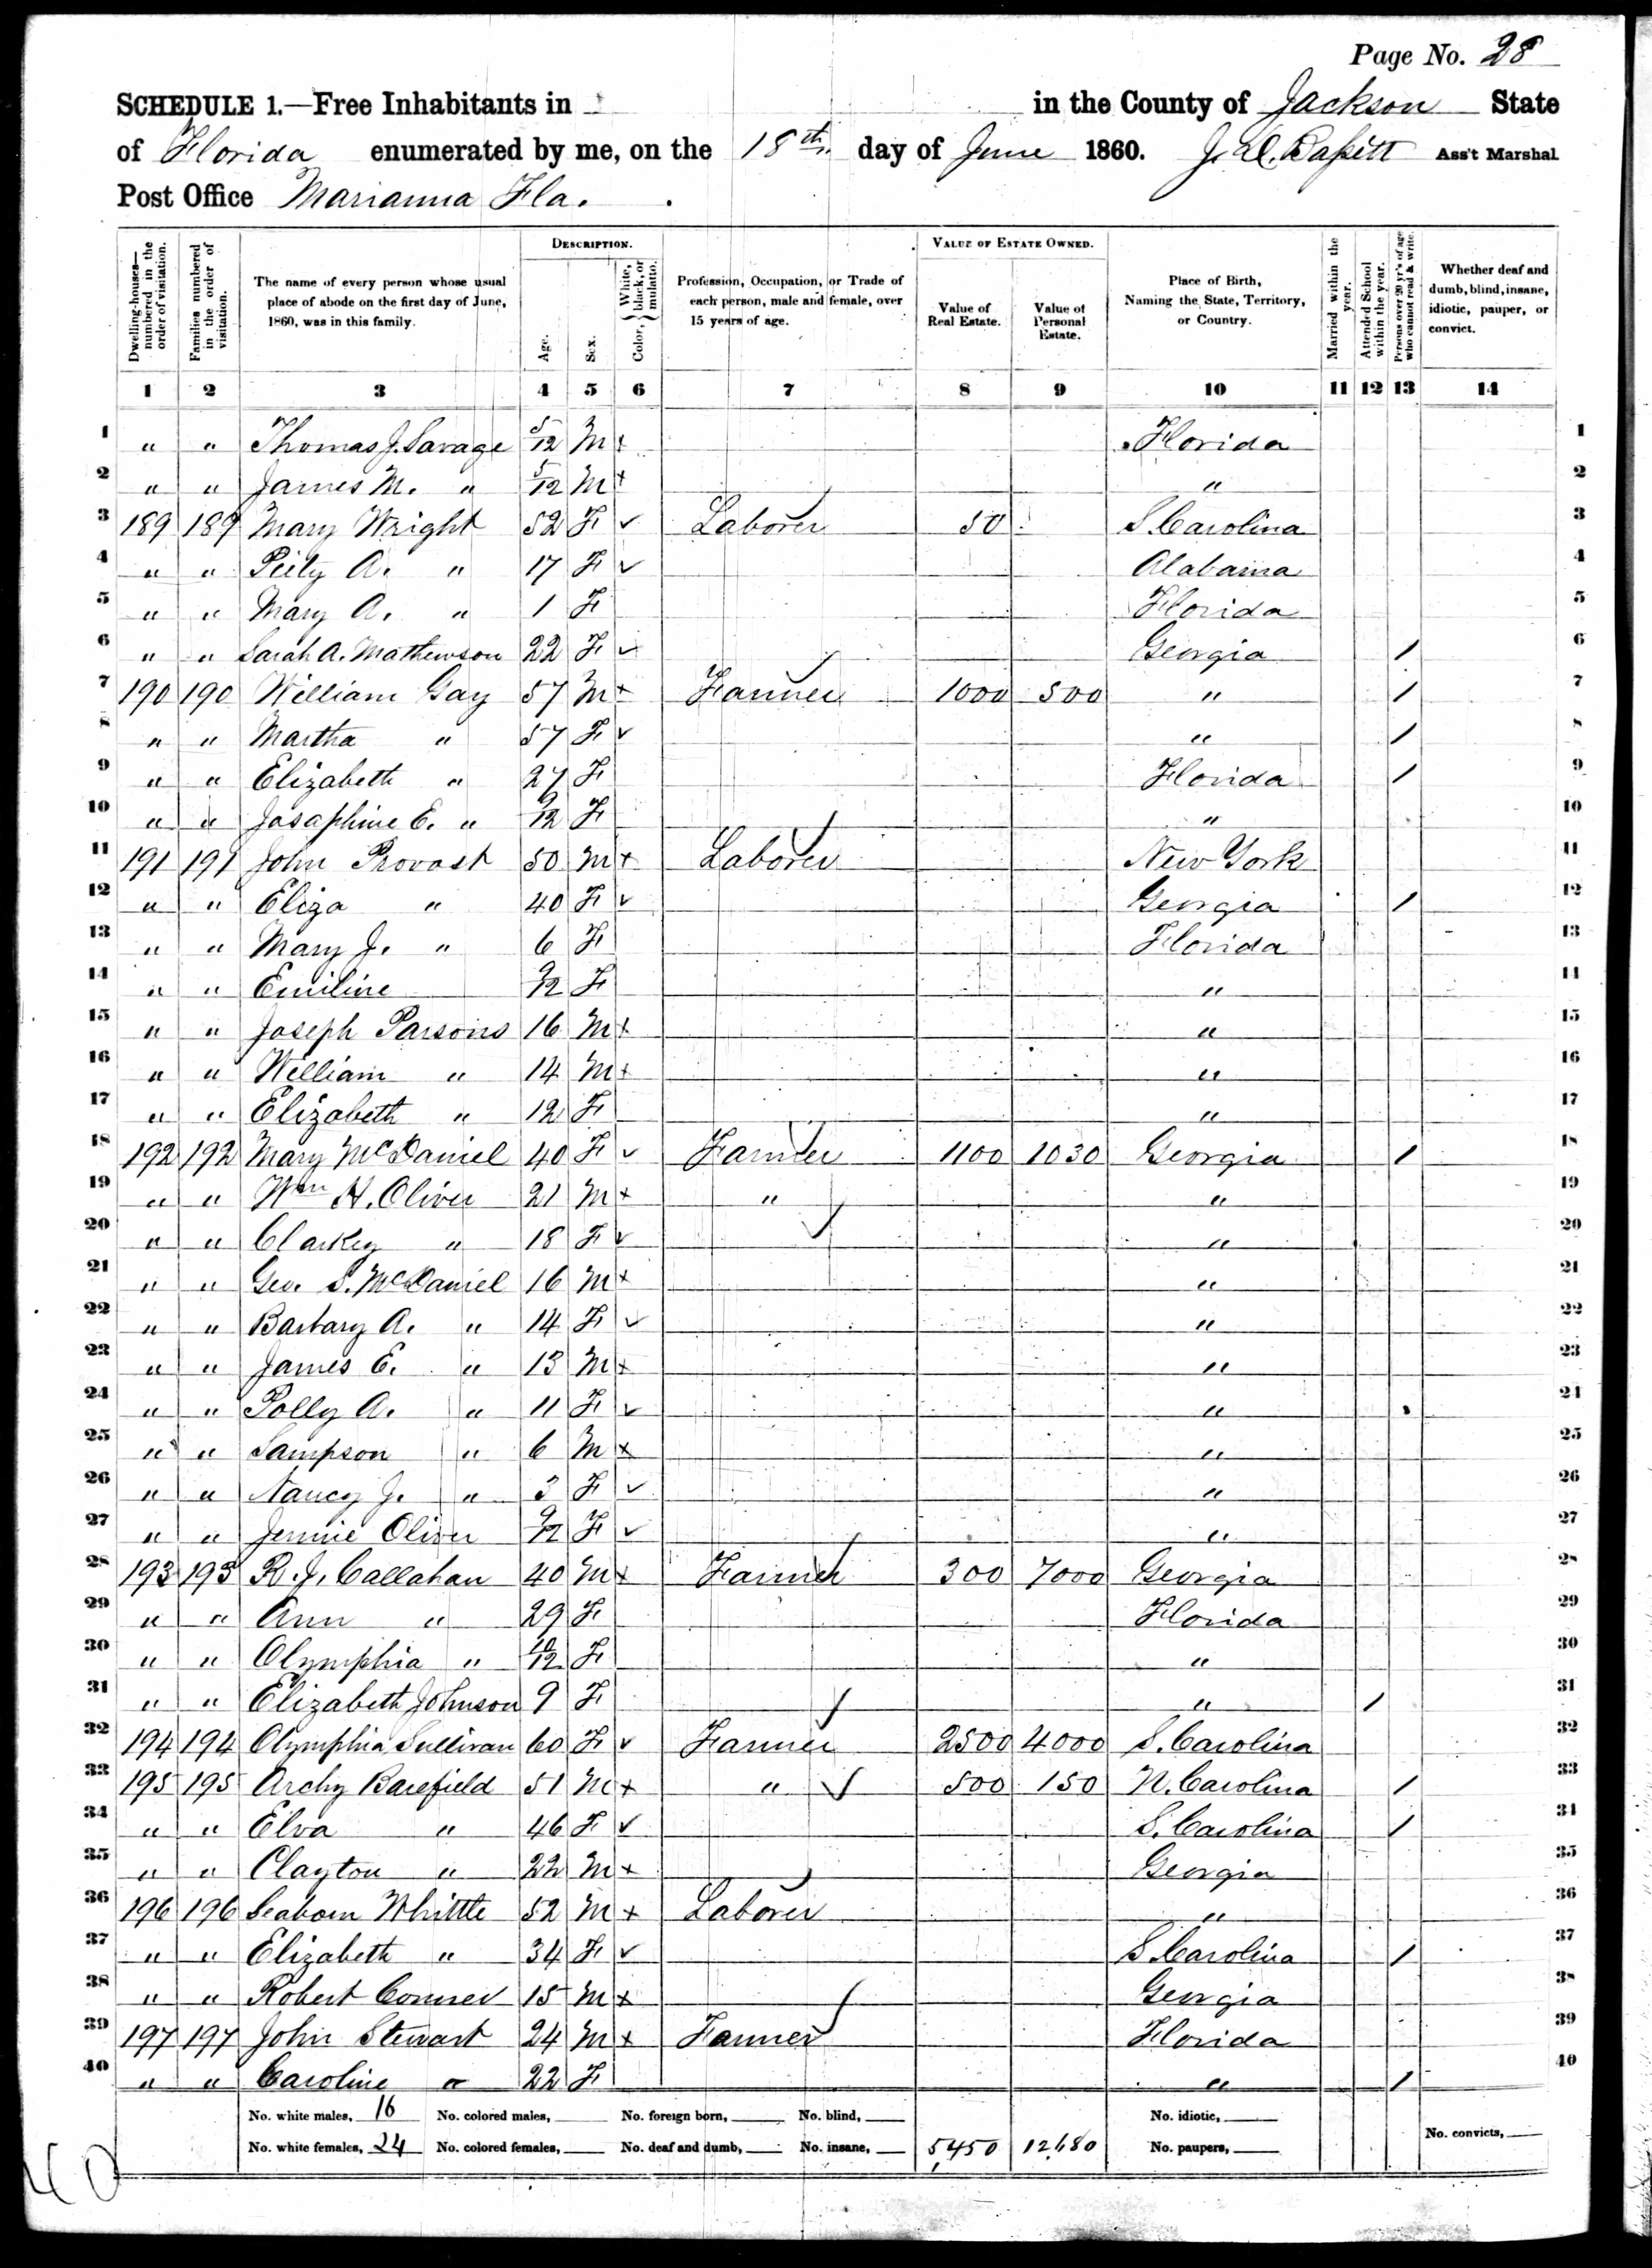 Page No. 28
SCHEDULE 1.—Free Inhabitants in in the County of Jackson State
of Florida enumerated by me, on the 18th day of June 1860. Ass't Marshal
Post Office Marianna Fla.
Dwelling-houses—numbered in the order of visitation.
Families numbered in the order of visitation.
The name of every person whose usual place of abode on the first day of June, 1860, was in this family.
DESCRIPTION.
Age.
Sex.
Color, { White, black, or mulatto.
Profession, Occupation, or Trade of each person, male and female, over 15 years of age.
VALUE OF ESTATE OWNED.
Value of Real Estate.
Value of Personal Estate.
Place of Birth, Naming the State, Territory, or Country.
Married within the year.
Attended School within the year.
Persons over 20 yr's of age who cannot read & write.
Whether deaf and dumb, blind, insane, idiotic, pauper, or convict.
1 2 3 4 5 6 7 8 9 10 11 12 13 14
1 " " Thomas J. Savage 5/12 M + Florida 1
2 " " James M. " 5/12 M + " 2
3 189 189 Mary Wright 52 F ✓ Laborer 50 S. Carolina 3
4 " " A. " 17 F ✓ Alabama 4
5 " " Mary A. " 1 F Florida 5
6 " " Sarah A. Mathewson 22 F ✓ Georgia / 6
7 190 190 William Gay 57 M + Farmer 1000 500 " / 7
8 " " Martha " 57 F ✓ " / 8
9 " " Elizabeth " 27 F Florida / 9
10 " " Josaphine E. " 9/12 F " 10
11 191 191 John Provost 50 M + Laborer New York 11
12 " " Eliza " 40 F ✓ Georgia / 12
13 " " Mary J. " 6 F Florida 13
14 " " Emiline 9/12 F " 14
15 " " Joseph Parsons 16 M + " 15
16 " " William " 14 M + " 16
17 " " Elizabeth " 12 F " 17
18 192 192 Mary McDaniel 40 F ✓ Farmer 1100 1030 Georgia / 18
19 " " Wm H. Oliver 21 M + " " 19
20 " " Clarkey " 18 F ✓ " 20
21 " " Geo. S. McDaniel 16 M + " 21
22 " " Barbary A. " 14 F ✓ " 22
23 " " James E. " 13 M + " 23
24 " " Polly A. " 11 F ✓ " 24
25 " " Sampson " 6 M + " 25
26 " " Nancy J. " 3 F ✓ " 26
27 " " Jennie Oliver 9/12 F ✓ " 27
28 193 193 R. J. Callahan 40 M + Farmer 300 7000 Georgia 28
29 " " Ann " 29 F Florida 29
30 " " Olymphia " 10/12 F " 30
31 " " Elizabeth Johnson 9 F " / 31
32 194 194 Olymphia Sullivan 60 F ✓ Farmer 2500 4000 S. Carolina 32
33 195 195 Archy Barefield 51 M + " 500 150 N. Carolina / 33
34 " " Elva " 46 F ✓ S. Carolina / 34
35 " " Clayton " 22 M + Georgia 35
36 196 196 Seaborn Whittle 52 M + Laborer " 36
37 " " Elizabeth " 34 F ✓ S Carolina / 37
38 " " Robert Conner 15 M + Georgia 38
39 197 197 John Stewart 24 M + Farmer Florida 39
40 " " Caroline " 22 F " / 40
No. white males, 16 No. colored males, No. foreign born, No. blind, No. idiotic,
No. white females, 24 No. colored females, No. deaf and dumb, No. insane, 5,450 12,680 No. paupers, No. convicts,
40